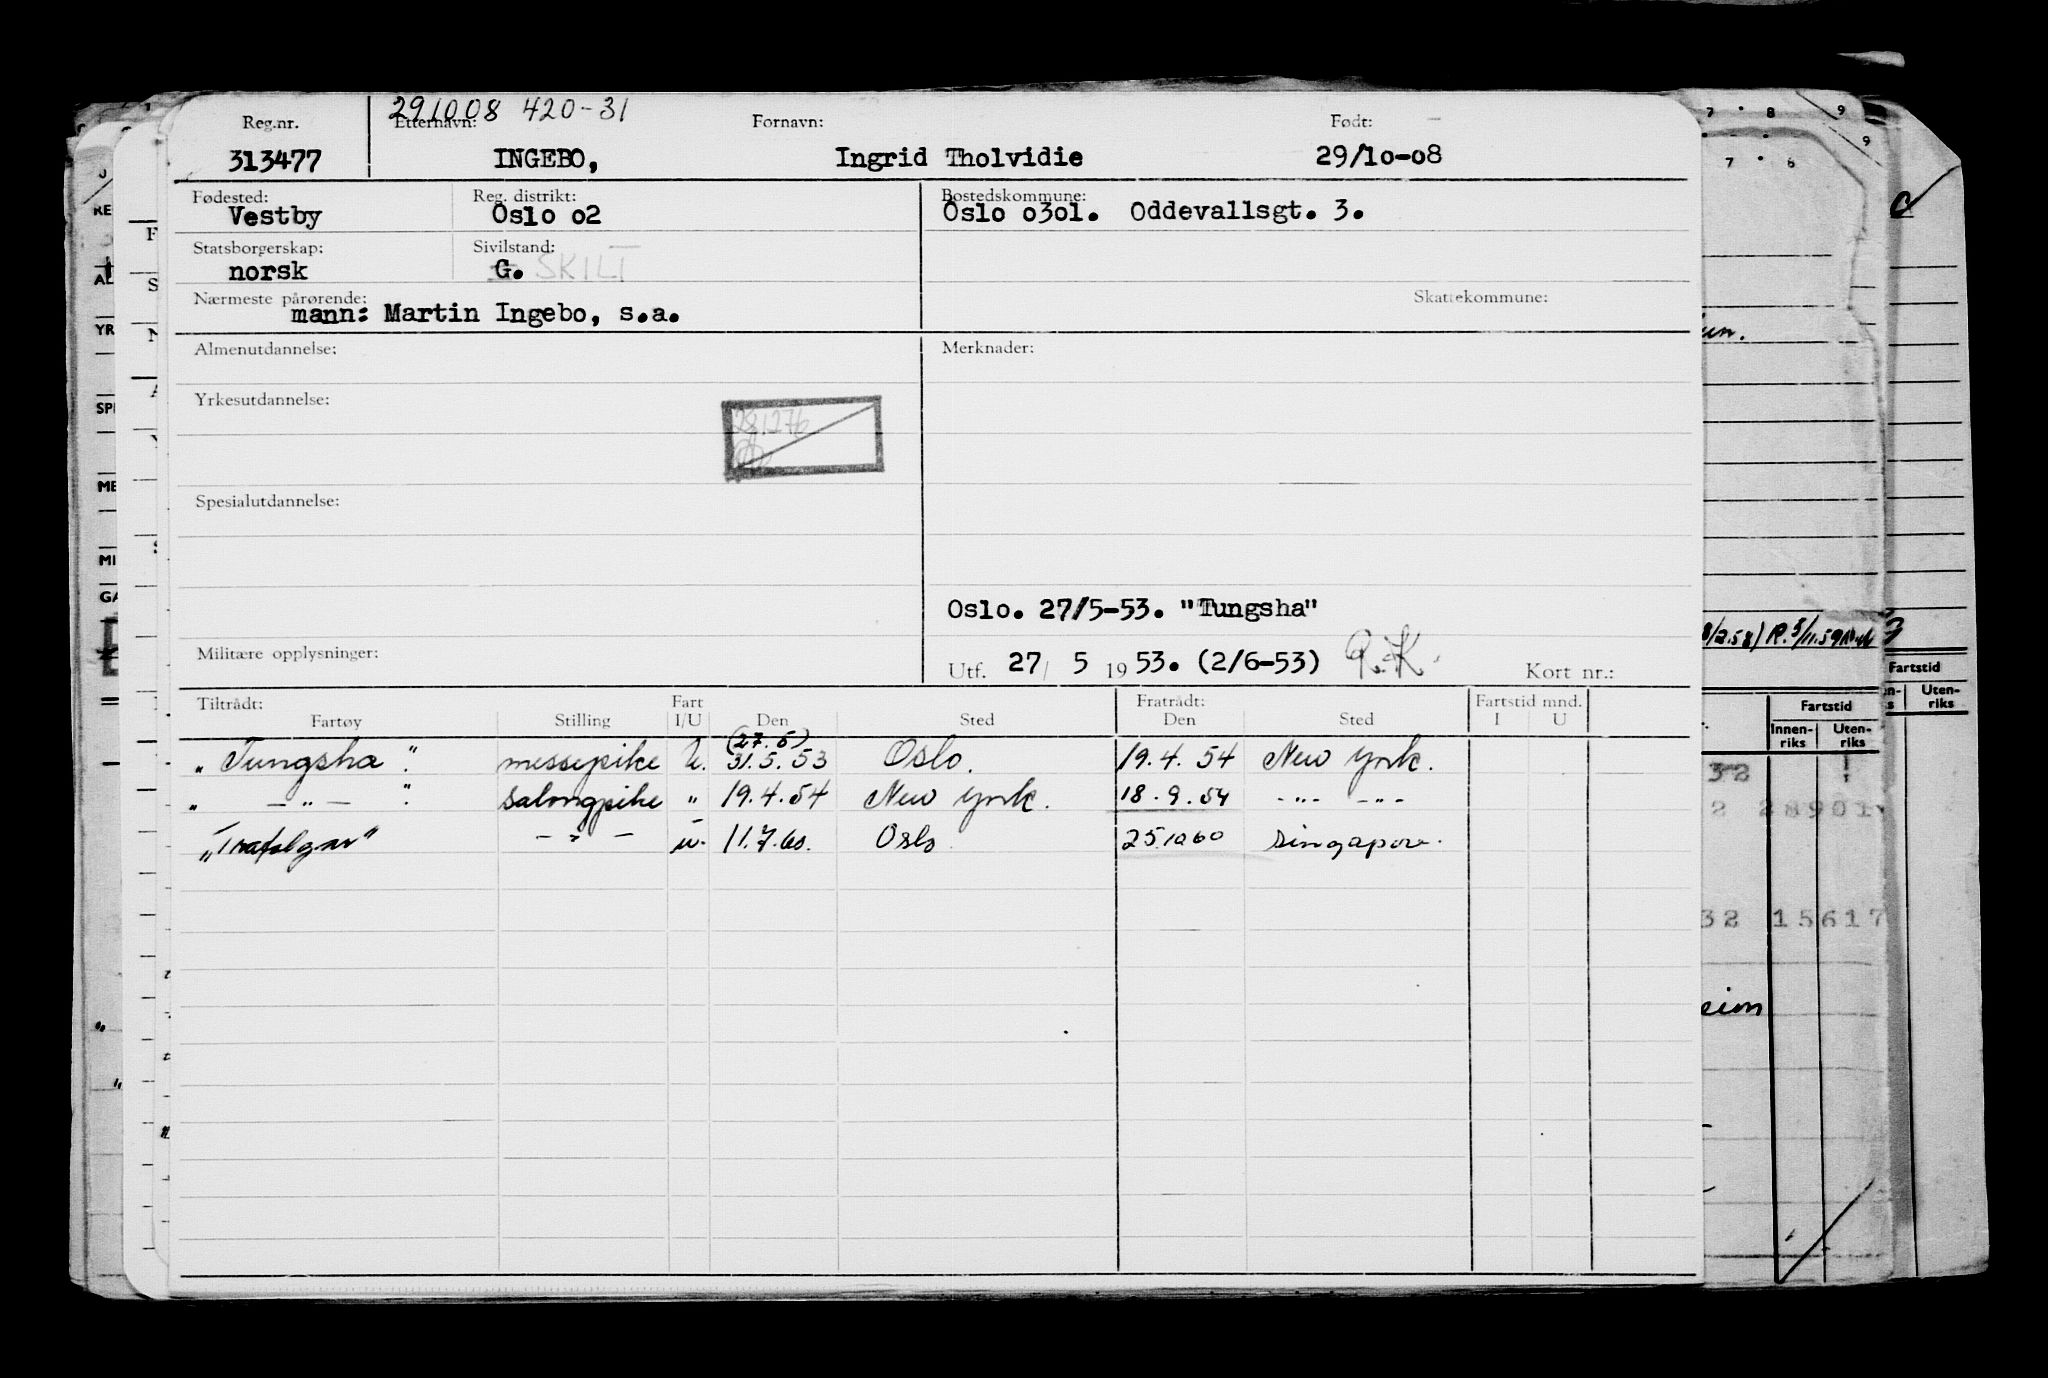 291008 420-31
Reg.nr. Etternavn: Fornavn: Født:
313477 INGEBO, Ingrid Tholvidie 29/10-08
Fødested: Reg. distrikt: Bostedskommune:
Vestby Oslo o2 Oslo o3o1. Oddevallsgt. 3.
Statsborgerskap: Sivilstand:
norsk G. SKILT
Nærmeste pårørende: Skattekommune:
mann: Martin Ingebo, s.a.
Almenutdannelse: Merknader:
Yrkesutdannelse:
281276
Spesialutdannelse:
Oslo. 27/5-53. "Tungsha"
Militære opplysninger: Utf. 27/ 5 1953. (2/6-53) Kort nr.:
Tiltrådt: Fart Fratrådt: Fartstid mnd.
Fartøy Stilling I/U Den Sted Den Sted I U
(27.5)
„Tungsha". messepike U. 31.5.53 Oslo. 19.4.54 New York.
„ —"— ". salongpike " 19.4.54 New York. 18.9.54 -"- -"-
„Trafalgar" —"— u. 11.7.60. Oslo 25.10.60 Singapore.
7 8 9
9
7
RE
AL
YR
SPE
ME
MI
GA
F
S
N
A
Y
S
R. 3/11.59
Fartstid
Uten-
riks
Fartstid
Innen- Uten-
riks riks
32
2 28901
32 15617